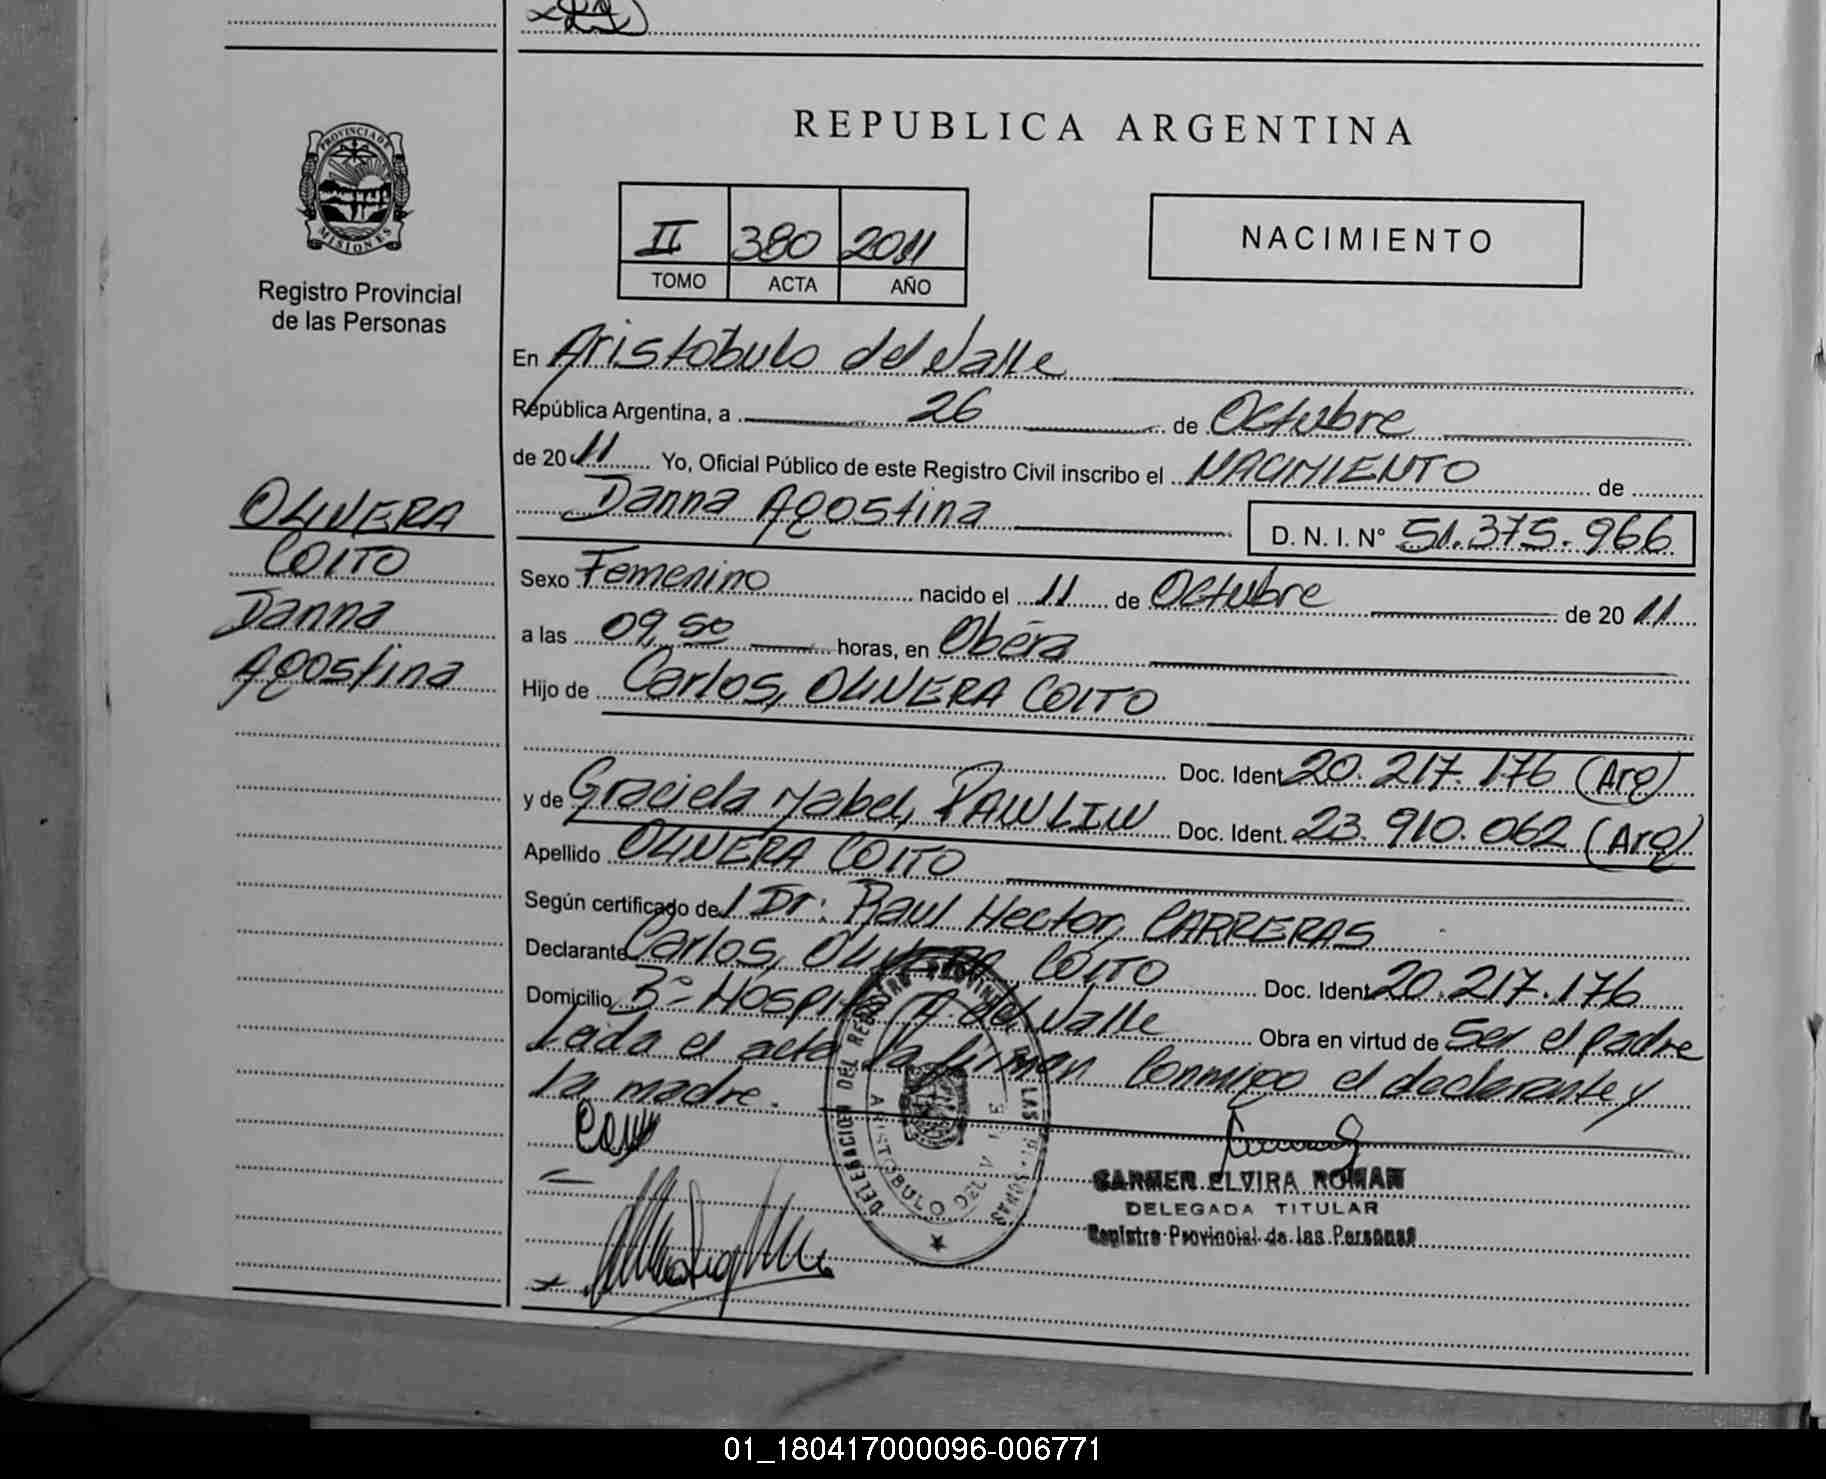 REPUBLICA ARGENTINA
PROVINCIA DE
MISIONES
Registro Provincial
de las Personas
II 380 2011
TOMO ACTA AÑO
NACIMIENTO
En Aristobulo del Valle
República Argentina, a 26 de Octubre
de 2011 Yo, Oficial Público de este Registro Civil inscribo el NACIMIENTO de
Danna Agostina D. N. I. N° 51.375.966
OLIVERA
COITO
Danna
Agostina
Sexo Femenino nacido el 11 de Octubre de 2011
a las 09,50 horas, en Oberá
Hijo de Carlos, OLIVERA COITO
Doc. Ident. 20.217.176 (Arg)
y de Graciela Mabel, PAWLIW Doc. Ident. 23.910.062 (Arg)
Apellido OLIVERA COITO
Según certificado del Dr. Raul Hector, CARRERAS
Declarante Carlos, OLIVERA COITO Doc. Ident. 20.217.176
Domicilio Bº Hospital A. del Valle Obra en virtud de Ser el padre
Leida el acta la firman Conmigo el declarante y
la madre.
DELEGACION DEL REGISTRO PROVINCIAL DE LAS PERSONAS
ARISTOBULO DEL VALLE
CARMEN ELVIRA ROMAN
DELEGADA TITULAR
Registro Provincial de las Personas
01_180417000096-006771